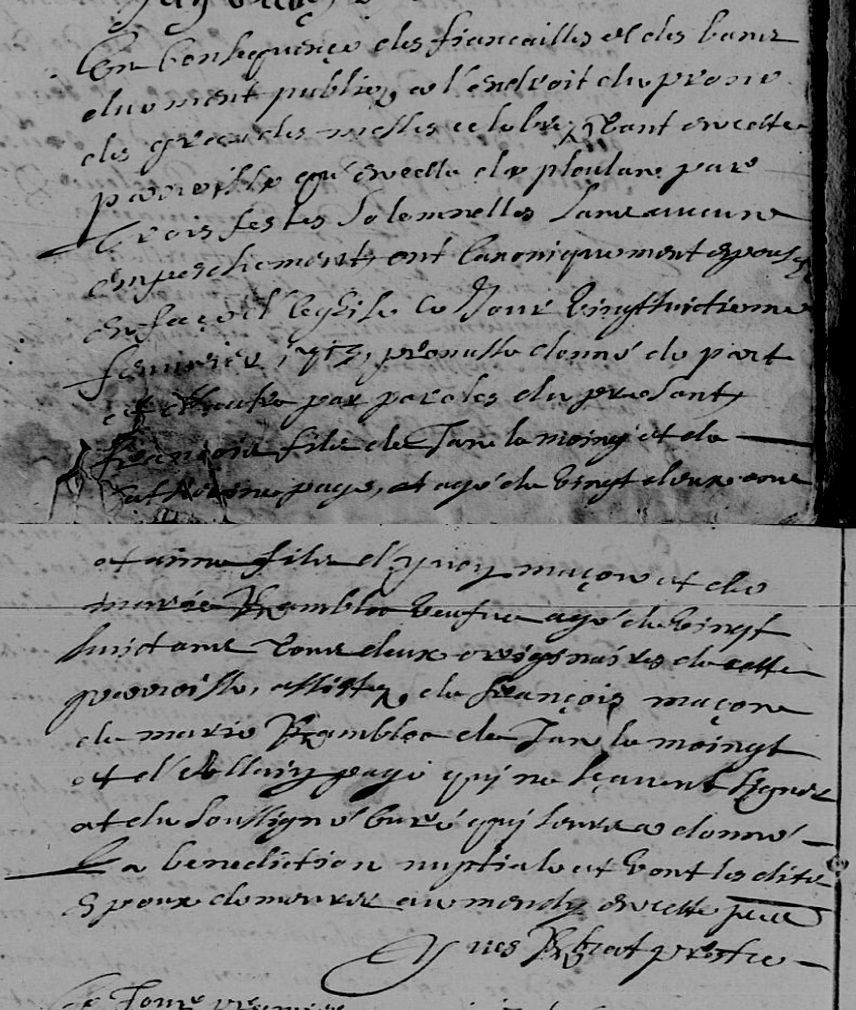 En Consequençe des fiancailles et des bans
duement publiez a l'endroit du prone
des grandes messes celebrez tant en cette
parroisse qu'en celle de ploulan par
trois festes Solemnelles Sans aucun
empeschements ont Canoniquement espousé
en façe d'leglise ce Jour Vingthuictieme
feuvrier 1713, promesse donné de part
et d'autre par paroles du present,
françois fils de Jan le moing et de
page, et agé de Vingt deux ans
et anne fille d'yvon maçon et de
marie Veufve agé de Vingt
huict ans tous deux originaires de cette
parroisse, assistez de françois maçon
de marie de Jan le moingt
et d' page qui ne sçavent Signer
et du Soussigné Curé qui leurs a donné
La benediction nuptiale et Vont les dits
Epoux demeurer au mendy en cette
Yves prestre
Ce Jour premier